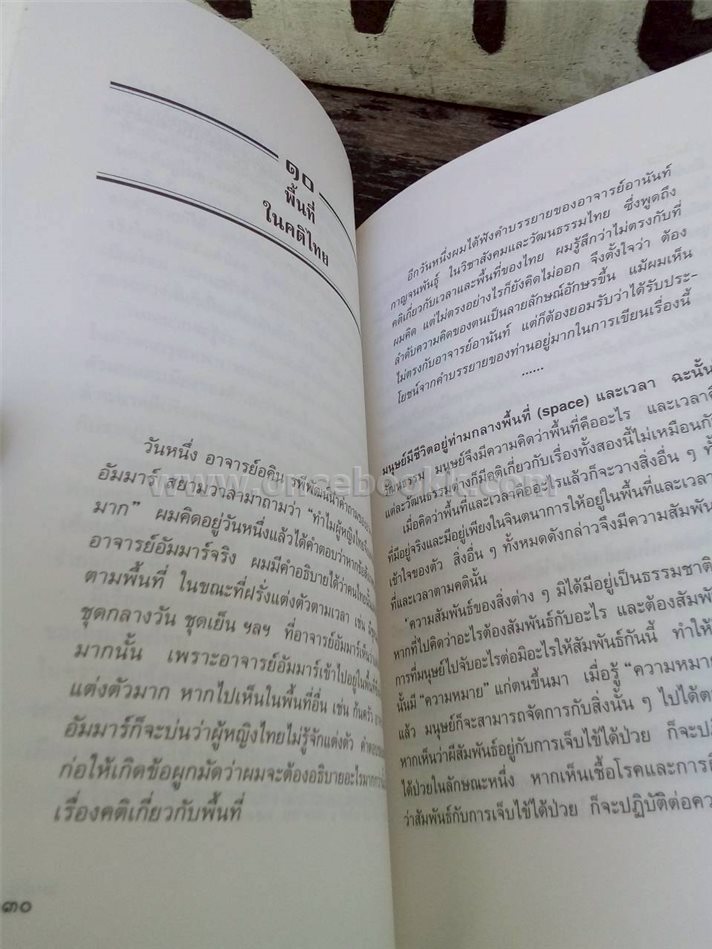 ๑๐
พื้นที่
ในคติไทย
วันหนึ่ง อาจารย์อคิน
อัมมาร์ สยามวาลามาถามว่า "ทำไมผู้หญิงไทย
มาก" ผมคิดอยู่วันหนึ่งแล้วได้คำตอบว่าหาก
อาจารย์อัมมาร์จริง ผมมีคำอธิบายได้ว่าคนไทยนั้น
ตามพื้นที่ ในขณะที่ฝรั่งแต่งตัวตามเวลา เช่น
ชุดกลางวัน ชุดเย็น ฯลฯ ที่อาจารย์อัมมาร์เห็น
มากนั้น เพราะอาจารย์อัมมาร์เข้าไปอยู่ในพื้นที่
แต่งตัวมาก หากไปเห็นในพื้นที่อื่น เช่น ก้นครัว
อัมมาร์ก็จะบ่นว่าผู้หญิงไทยไม่รู้จักแต่งตัว
ก่อให้เกิดข้อผูกมัดว่าผมจะต้องอธิบายอะไร
เรื่องคติเกี่ยวกับพื้นที่
๓๐
อีกวันหนึ่งผมได้ฟังคำบรรยายของอาจารย์อานันท์
กาญจนพันธุ์ ในวิชาสังคมและวัฒนธรรมไทย ซึ่งพูดถึง
คติเกี่ยวกับเวลาและพื้นที่ของไทย ผมรู้สึกว่าไม่ตรงกับที่
ผมคิด แต่ไม่ตรงอย่างไรก็ยังคิดไม่ออก จึงตั้งใจว่า ต้อง
ลำดับความคิดของตนเป็นลายลักษณ์อักษรขึ้น แม้ผมเห็น
ไม่ตรงกับอาจารย์อานันท์ แต่ก็ต้องยอมรับว่าได้รับประ-
โยชน์จากคำบรรยายของท่านอยู่มากในการเขียนเรื่องนี้
......
มนุษย์มีชีวิตอยู่ท่ามกลางพื้นที่ (space) และเวลา ฉะนั้น
มนุษย์จึงมีความคิดว่าพื้นที่คืออะไร และเวลา
แต่ละวัฒนธรรมต่างก็มีคติเกี่ยวกับเรื่องทั้งสองนี้ไม่เหมือนกัน
เมื่อคิดว่าพื้นที่และเวลาคืออะไรแล้วก็จะวางสิ่งอื่น ๆ
ที่มีอยู่จริงและมีอยู่เพียงในจินตนาการให้อยู่ในพื้นที่และเวลา
เข้าใจของตัว สิ่งอื่น ๆ ทั้งหมดดังกล่าวจึงมีความสัมพัน
ที่และเวลาตามคตินั้น
ความสัมพันธ์ของสิ่งต่าง ๆ มิได้มีอยู่เป็นธรรมชาติ
หากที่ไปคิดว่าอะไรต้องสัมพันธ์กับอะไร และต้องสัมพั
การที่มนุษย์ไปจับอะไรต่อมิอะไรให้สัมพันธ์กันนี้ ทำให้
นั้นมี "ความหมาย" แก่ตนขึ้นมา เมื่อรู้ "ความหมาย
แล้ว มนุษย์ก็จะสามารถจัดการกับสิ่งนั้น ๆ ไปได้
หากเห็นว่าผีสัมพันธ์อยู่กับการเจ็บไข้ได้ป่วย ก็จะปฏิ
ได้ป่วยในลักษณะหนึ่ง หากเห็นเชื้อโรคและการ
ว่าสัมพันธ์กับการเจ็บไข้ได้ป่วย ก็จะปฏิบัติต่อคว